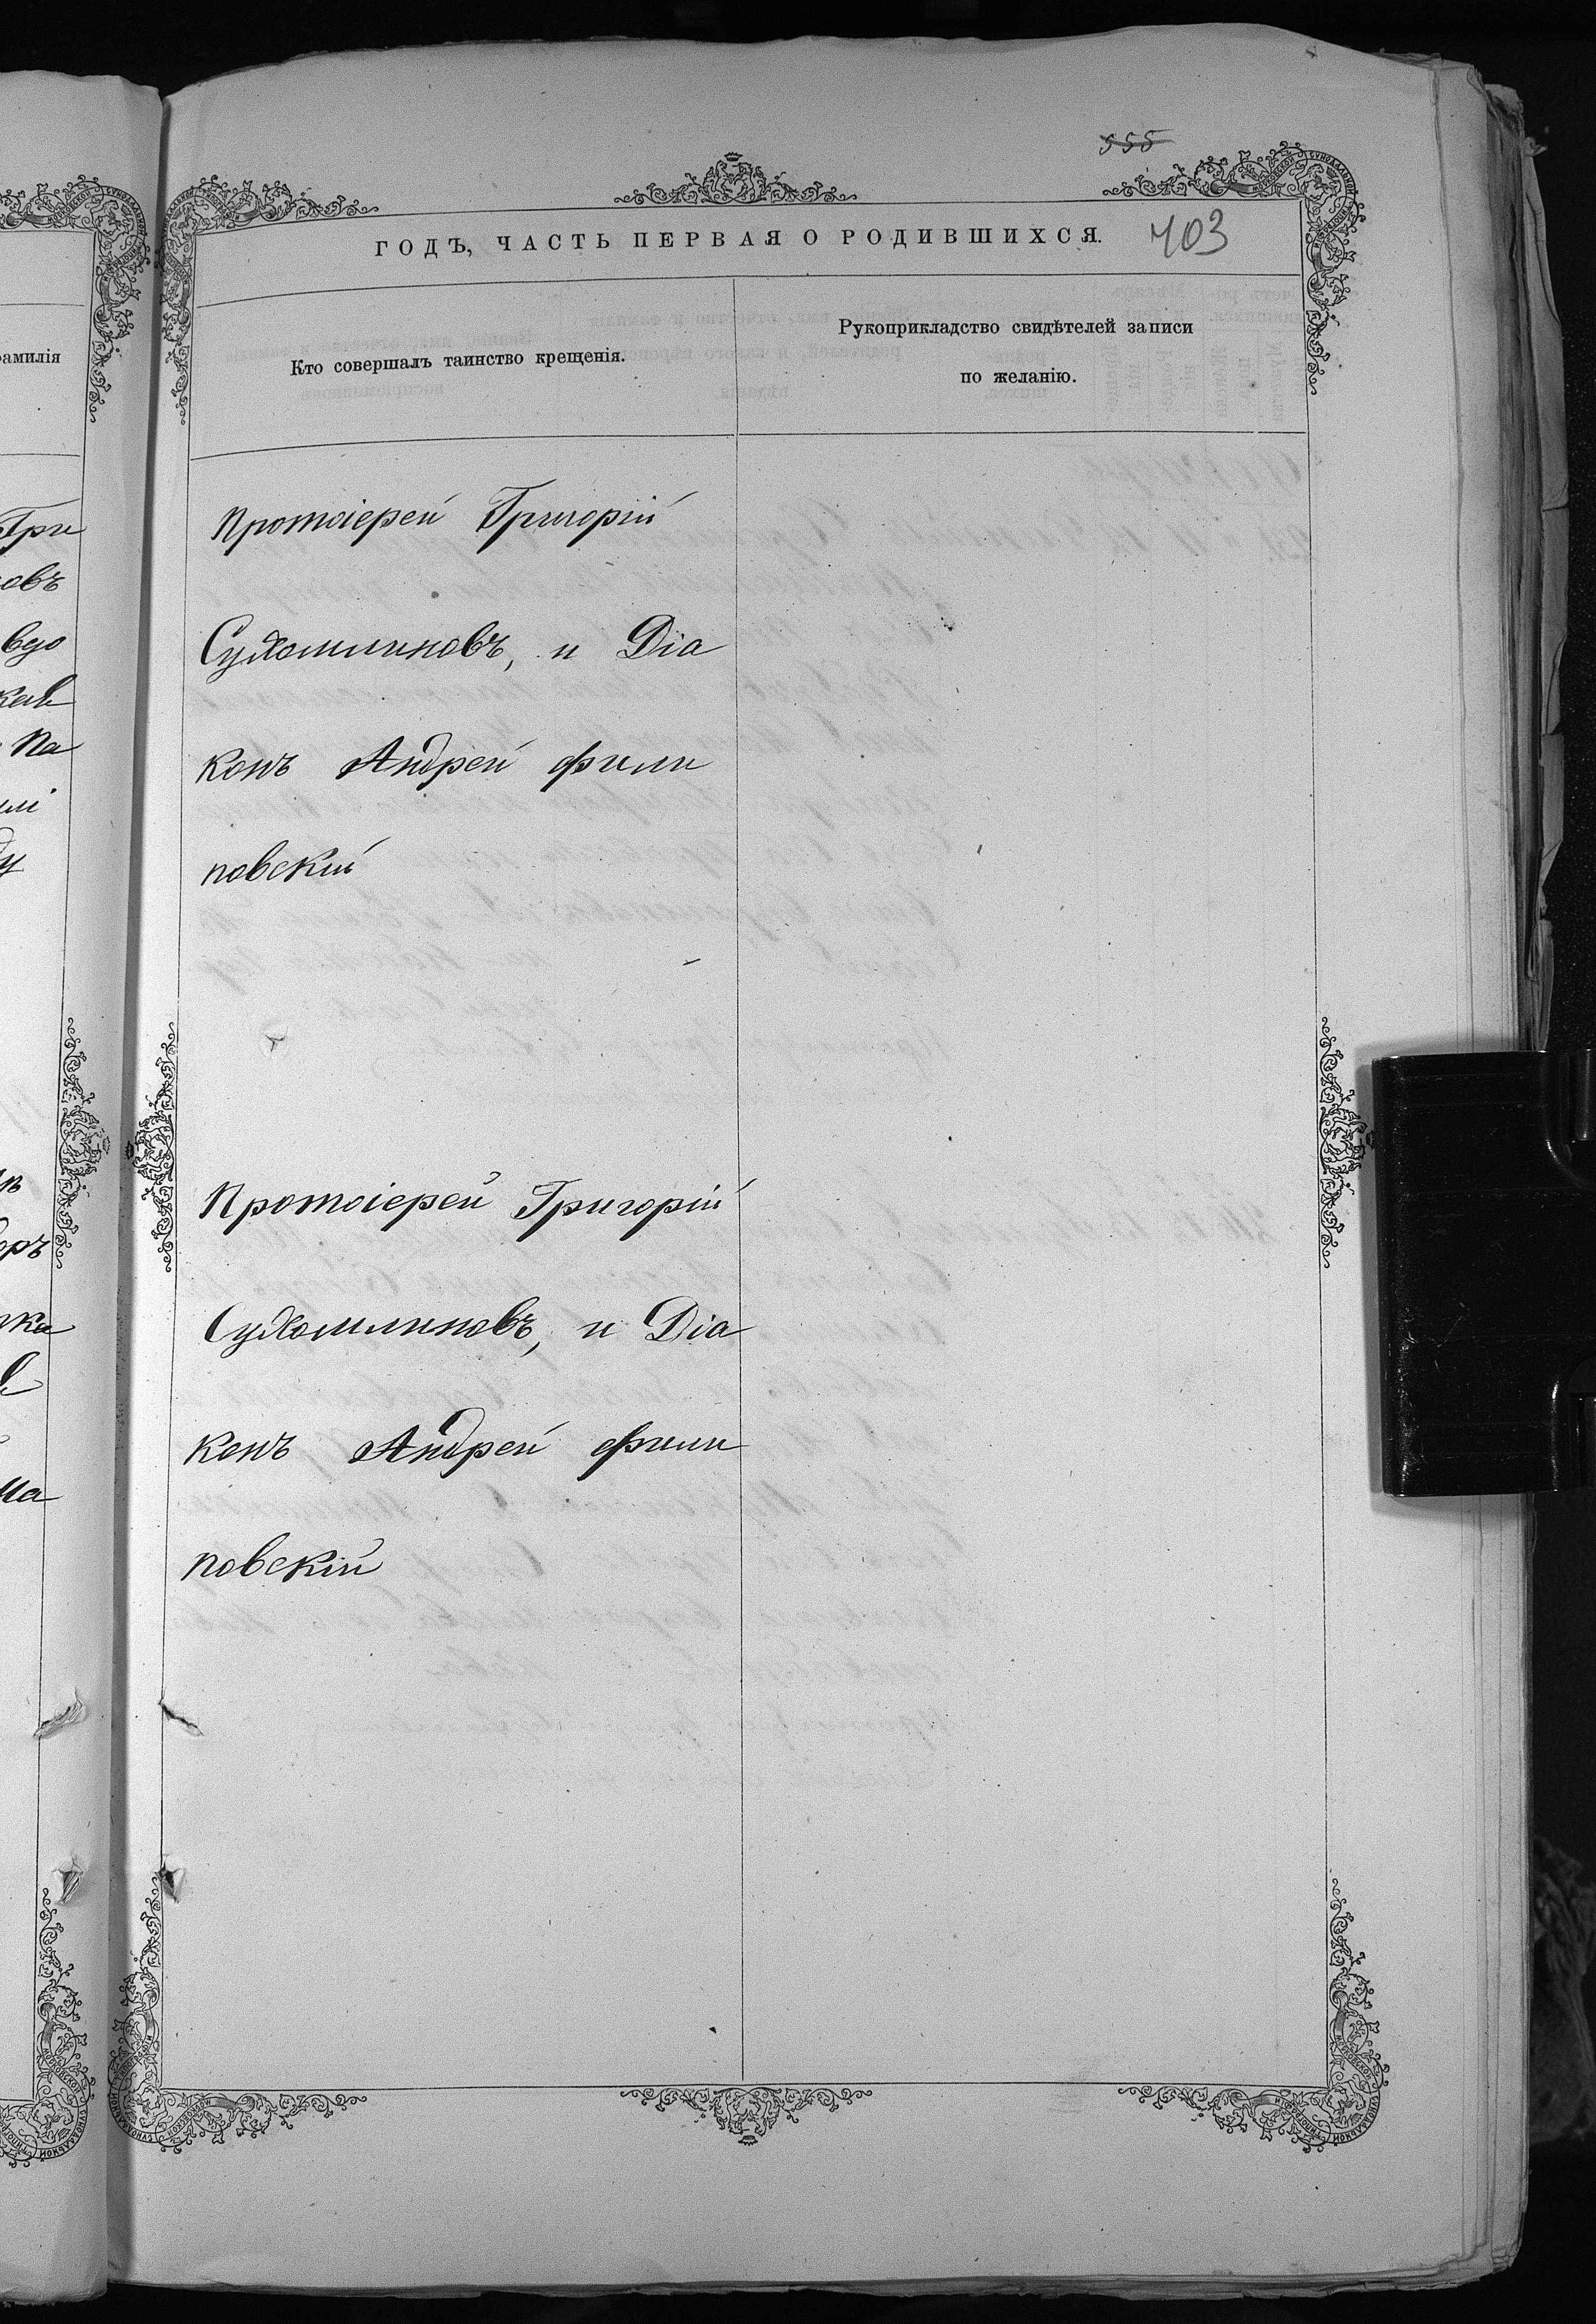 555
ГОДЪ, ЧАСТЬ ПЕРВАЯ О РОДИВШИХСЯ. 403
Кто совершалъ таинство крещенія.
Рукоприкладство свидѣтелей записи
по желанію.
Протоіерей Григорій
Сухомлиновъ, и Діа
конъ Андрей Фили
повскій
Протоіерей Григорій
Сухомлиновъ, и Діа
конъ Андрей Фили
повскій
фамилія
Гри
овъ
вдо
Па
ка